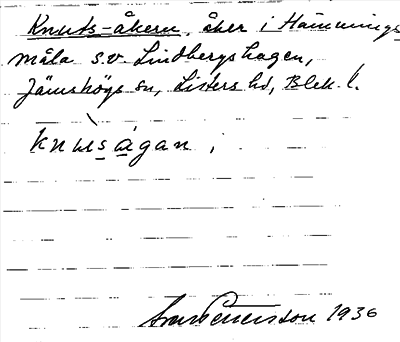 Knuts-åkern, åker i Hamnings
måla s.v. Lindbergshagen,
Jämshögs sn, Listers hd, Blek. l.
knusågan,
1936